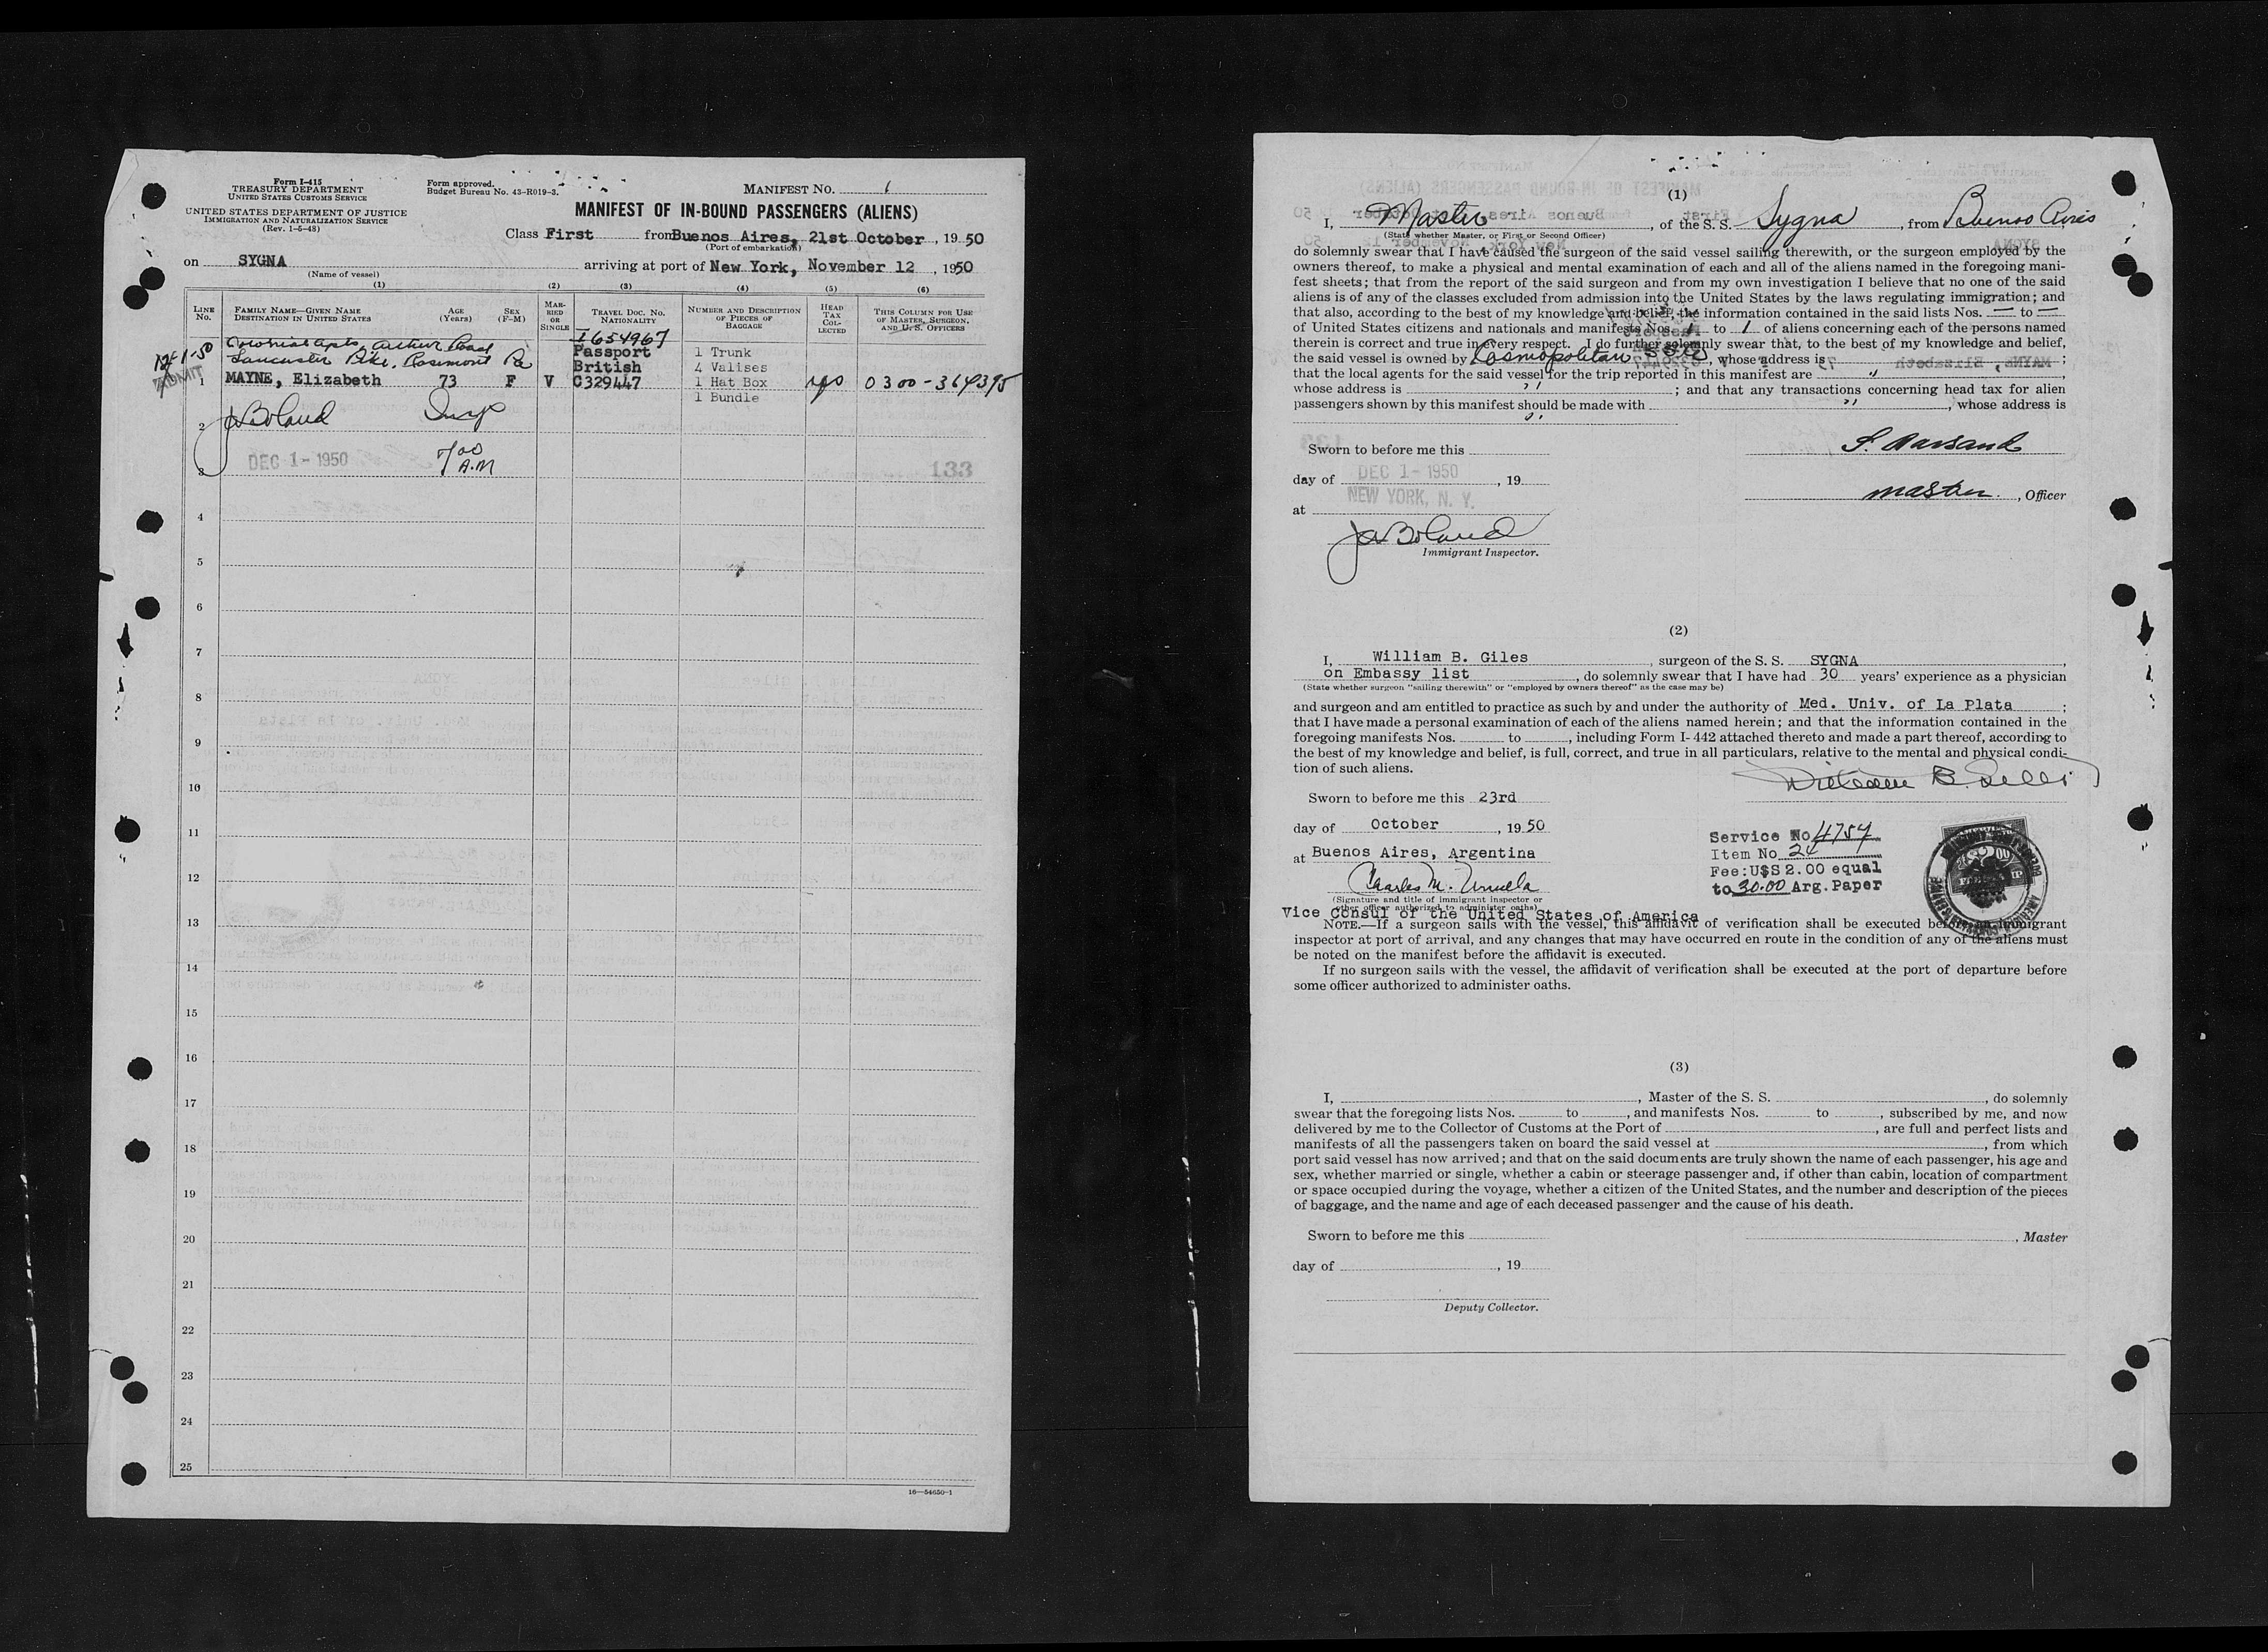 Form I-415
TREASURY DEPARTMENT
UNITED STATES CUSTOMS SERVICE
UNITED STATES DEPARTMENT OF JUSTICE
IMMIGRATION AND NATURALIZATION SERVICE
(Rev. 1-5-48)
Form approved.
Budget Bureau No. 43-R019-3.
MANIFEST NO. 1
MANIFEST OF IN-BOUND PASSENGERS (ALIENS)
Class First from Buenos Aires, 21st October, 1950
(Port of embarkation)
on SYGNA arriving at port of New York, November 12, 1950
(Name of vessel)
(1) (2) (3) (4) (5) (6)
LINE No. FAMILY NAME—GIVEN NAME DESTINATION IN UNITED STATES AGE (Years) SEX (F-M) MARRIED OR SINGLE TRAVEL DOC. NO. NATIONALITY NUMBER AND DESCRIPTION OF PIECES OF BAGGAGE HEAD TAX COLLECTED THIS COLUMN FOR USE OF MASTER, SURGEON, AND U. S. OFFICERS
I654967
Colonial Apts, Arthur Road
12-1-50 Lancaster Pike, Rosemont Pa Passport 1 Trunk
ADMIT British 4 Valises
1 MAYNE, Elizabeth 73 F V C329447 1 Hat Box yes 0300-364395
1 Bundle
2 JaBoland Insp
3 DEC 1-1950 7 00 A.M 133
4
5
6
7
8
9
10
11
12
13
14
15
16
17
18
19
20
21
22
23
24
25
16—54650-1
(1)
I, Master, of the S. S. Sygna, from Buenos Aires
(State whether Master, or First or Second Officer)
do solemnly swear that I have caused the surgeon of the said vessel sailing therewith, or the surgeon employed by the
owners thereof, to make a physical and mental examination of each and all of the aliens named in the foregoing mani-
fest sheets; that from the report of the said surgeon and from my own investigation I believe that no one of the said
aliens is of any of the classes excluded from admission into the United States by the laws regulating immigration; and
that also, according to the best of my knowledge and belief, the information contained in the said lists Nos. — to —
of United States citizens and nationals and manifests Nos. 1 to 1 of aliens concerning each of the persons named
therein is correct and true in every respect. I do further solemnly swear that, to the best of my knowledge and belief,
the said vessel is owned by Cosmopolitan SS Co, whose address is ;
that the local agents for the said vessel for the trip reported in this manifest are " ,
whose address is " ; and that any transactions concerning head tax for alien
passengers shown by this manifest should be made with " , whose address is
"
Sworn to before me this
day of DEC 1-1950, 19
NEW YORK, N. Y.
at
JaBoland
Immigrant Inspector.
S. Aarsand
master, Officer
(2)
I, William B. Giles, surgeon of the S. S. SYGNA,
on Embassy list, do solemnly swear that I have had 30 years' experience as a physician
(State whether surgeon "sailing therewith" or "employed by owners thereof" as the case may be)
and surgeon and am entitled to practice as such by and under the authority of Med. Univ. of La Plata ;
that I have made a personal examination of each of the aliens named herein; and that the information contained in the
foregoing manifests Nos. to , including Form I-442 attached thereto and made a part thereof, according to
the best of my knowledge and belief, is full, correct, and true in all particulars, relative to the mental and physical condi-
tion of such aliens.
William B. Giles
Sworn to before me this 23rd
day of October, 1950
at Buenos Aires, Argentina
Charles M. Urruela
(Signature and title of immigrant inspector or
other officer authorized to administer oaths)
Vice Consul of the United States of America
Service No 4757
Item No. 24
Fee: U$S 2.00 equal
to 30.00 Arg. Paper
NOTE.—If a surgeon sails with the vessel, this affidavit of verification shall be executed before an immigrant
inspector at port of arrival, and any changes that may have occurred en route in the condition of any of the aliens must
be noted on the manifest before the affidavit is executed.
If no surgeon sails with the vessel, the affidavit of verification shall be executed at the port of departure before
some officer authorized to administer oaths.
(3)
I, , Master of the S. S. , do solemnly
swear that the foregoing lists Nos. to , and manifests Nos. to , subscribed by me, and now
delivered by me to the Collector of Customs at the Port of , are full and perfect lists and
manifests of all the passengers taken on board the said vessel at , from which
port said vessel has now arrived; and that on the said documents are truly shown the name of each passenger, his age and
sex, whether married or single, whether a cabin or steerage passenger and, if other than cabin, location of compartment
or space occupied during the voyage, whether a citizen of the United States, and the number and description of the pieces
of baggage, and the name and age of each deceased passenger and the cause of his death.
Sworn to before me this
, Master
day of , 19
Deputy Collector.